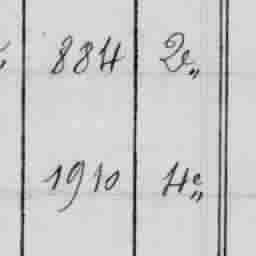 884 2e„
1910 4e„